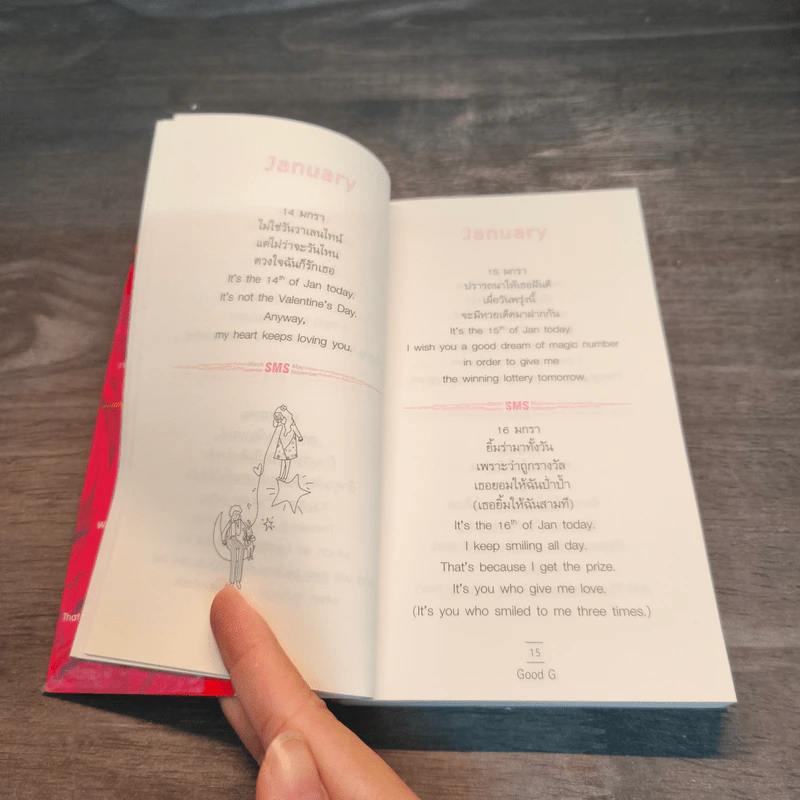 January
14 มกรา
ไม่ใช่วันวาเลนไทน์
แต่ไม่ว่าจะวันไหน
ดวงใจฉันก็รักเธอ
It's the 14th of Jan today.
It's not the Valentine's Day.
Anyway,
my heart keeps loving you.
SMS
January
15 มกรา
ปรารถนาให้เธอฝันดี
เผื่อวันพรุ่งนี้
จะมีหวยเด็ดมาฝากกัน
It's the 15th of Jan today.
I wish you a good dream of magic number
in order to give me
the winning lottery tomorrow.
SMS
16 มกรา
ยิ้มร่ามาทั้งวัน
เพราะว่าถูกรางวัล
เธอยอมให้ฉันป่ำป้ำ
(เธอยิ้มให้ฉันสามที)
It's the 16th of Jan today.
I keep smiling all day.
That's because I get the prize.
It's you who give me love.
(It's you who smiled to me three times.)
15
Good G
That